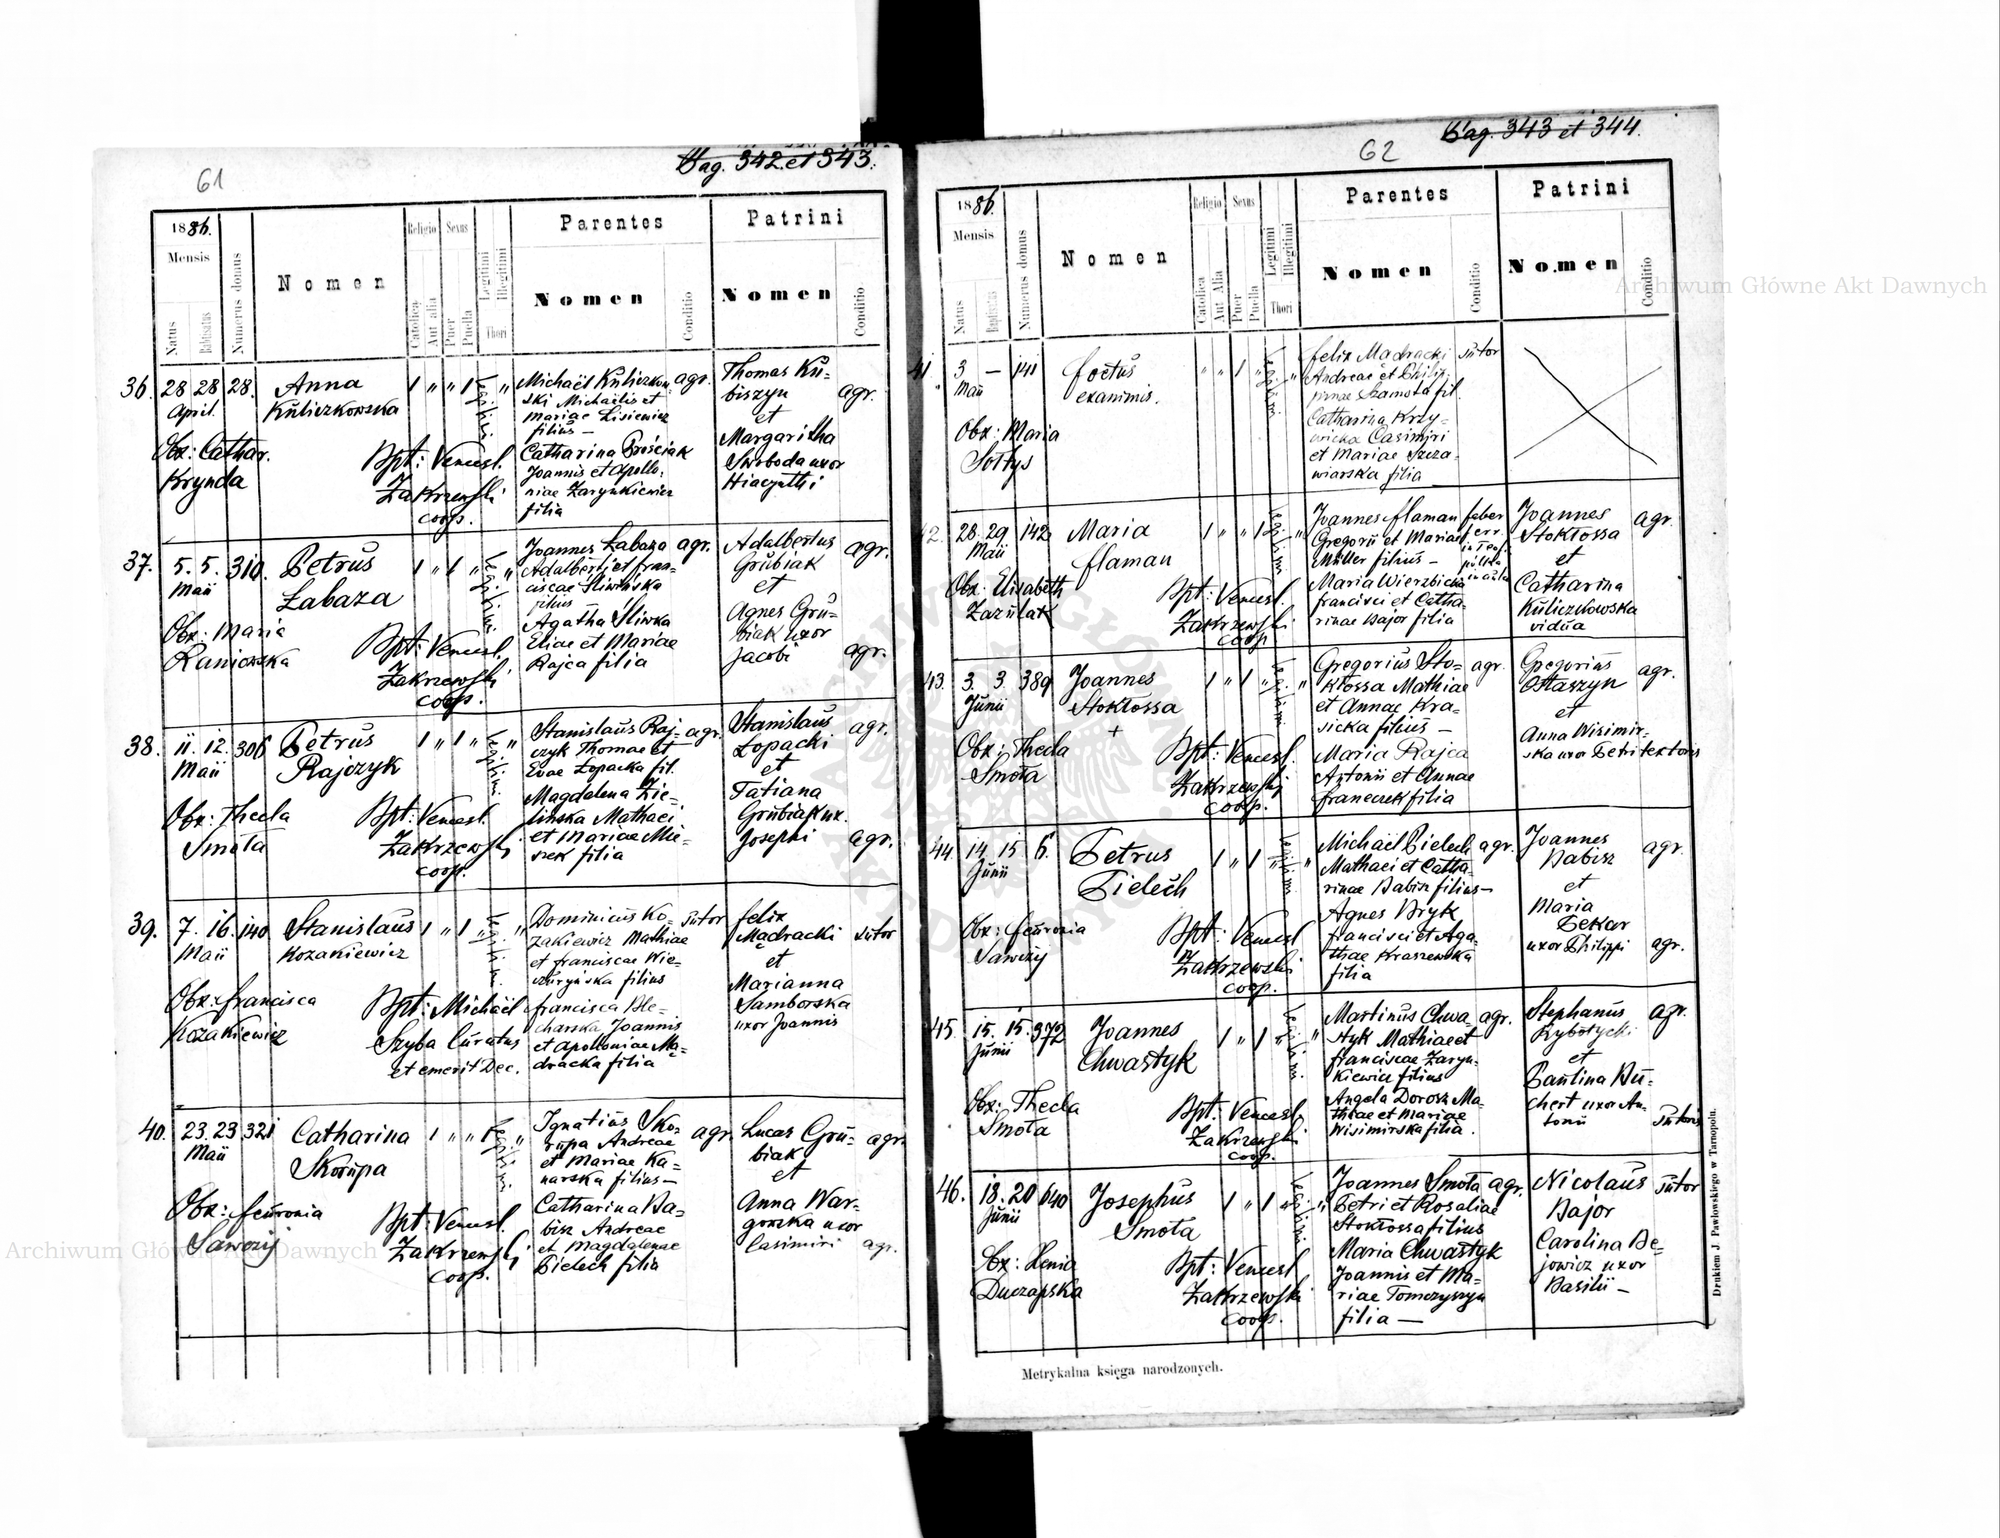 61
Pag. 342 et 343.
1886.
Mensis
Natus
Babtisatus
Numerus domus
Nomen
Religio
Catolica
Aut alia
Sexus
Puer
Puella
Legitimi
Illegitimi
Thori
Parentes
Nomen
Conditio
Patrini
Nomen
Conditio
36. 28 28 28.
April.
Anna
Kuliczkowska
Obx: Cathar.
Krynda
Bpt: Vencesl.
Zakrzewski
coop.
Michaël Kuliczkow- agr.
ski Michaëlis et
Mariae Lisiewicz
filius —
Catharina Prościak
Joannis et Apollo-
niae Zarynkiewicz
filia
Thomas Ku-
biszyn agr.
et
Margaritha
Swoboda uxor
Hiacynthi
37. 5. 5. 310.
Maii
Petrus
Łabaza
Obx: Maria
Raniowska
Bpt: Vencesl.
Zakrzewski
coop.
Joannes Łabaza agr.
Adalberti et Fran-
ciscae Śliwińska
filius
Agatha Śliwka
Eliae et Mariae
Rajca filia
Adalbertus
Grubiak agr.
et
Agnes Gru-
biak uxor
Jacobi agr.
38. 11. 12. 306
Maii
Petrus
Rajczyk
Obx: Thecla
Smota
Bpt: Vencesl.
Zakrzewski
coop.
Stanislaus Raj- agr.
czyk Thomae et
Evae Łopacka fil.
Magdalena Zie-
lińska Mathaei
et Mariae Mie-
szek filia
Stanislaus agr.
Łopacki
et
Tatiana
Grubiak ux.
Josephi agr.
39. 7. 16. 140
Maii
Stanislaus
Kozakiewicz
Obx: Francisca
Kozakiewicz
Bpt: Michaël
Szyba Curatus
et emerit Dec.
Dominicus Ko- sutor
zakiewicz Mathiae
et Franciscae Wie-
czuryńska filius
Francisca Ble-
charska Joannis
et Apolloniae Mą-
dracka filia
Felix
Mądracki sutor
et
Marianna
Samborska
uxor Joannis
40. 23. 23 321
Maii
Catharina
Skorupa
Obx: Feuronia
Sawczij
Bpt: Vencesl.
Zakrzewski
coop.
Ignatius Sko-
rupa Andreae agr.
et Mariae Ka-
narska filius —
Catharina Ba-
bisz Andreae
et Magdalenae
Pielech filia
Lucas Gru- agr.
biak
et
Anna War-
gowska uxor
Casimiri agr.
62
Pag. 343 et 344.
1886.
Mensis
Natus
Baptisatus
Numerus domus
Nomen
Religio
Catolica
Aut Alia
Sexus
Puer
Puella
Legitimi
Illegitimi
Thori
Parentes
Nomen
Conditio
Patrini
Nomen
Conditio
41 3 — 141
Maii
foetus
exanimis.
Obx: Maria
Sołtys
Felix Madracki sutor
Andreae et Philip-
pinae Szamota fil.
Catharina Krzy-
wicka Casimiri
et Mariae Szcza-
wiarska filia
42. 28. 29 142
Maii
Maria
Flaman
Obx: Elisabeth
Zazulak
Bpt: Vencesl.
Zakrzewski
coop
Joannes Flaman faber
Gregorii et Mariae ferr.
Müller filius —
Maria Wierzbicka
Francisci et Catha-
rinae Bajor filia
Joannes agr.
Stokłossa
et
Catharina
Kuliczkowska
vidua
43. 3. 3. 389
Junii
Joannes
Stokłossa
+
Obx: Thecla
Smota
Bpt: Vencesl.
Zakrzewski
coop.
Gregorius Sto- agr.
kłossa Mathiae
et Annae Kra-
sicka filius —
Maria Rajca
Antonii et Annae
Franczek filia
Gregorius agr.
Ostaszyn
et
Anna Wisimir-
ska uxor Petri textoris
44. 14. 15 6.
Junii
Petrus
Pielech
Obx: Feuronia
Sawczij
Bpt: Vencesl
Zakrzewski
coop.
Michaël Pielech agr.
Mathaei et Catha-
rinae Babisz filius —
Agnes Bryk
Francisci et Aga-
thae Kraszewska
filia
Joannes
Babisz agr.
et
Maria
Pekar
uxor Philippi agr.
45. 15. 15. 372
Junii
Joannes
Chwastyk
Obx: Thecla
Smota
Bpt: Vencesl.
Zakrzewski
coop.
Martinus Chwa- agr.
styk Mathiae et
Franciscae Zaryn-
kiewicz filius
Angela Dorosz Ma-
thiae et Mariae
Wisimirska filia.
Stephanus agr.
Rybotycki
et
Paulina Bu-
chert uxor An-
tonii sutoris
46. 18. 20 640
Junii
Josephus
Smota
Obx: Xenia
Duczapska
Bpt: Vencesl
Zakrzewski
coop.
Joannes Smota agr.
Petri et Rosaliae
Stokłossa filius
Maria Chwastyk
Joannis et Ma-
riae Tomczyszyn
filia —
Nicolaus sutor
Bajor
Carolina Be-
jowicz uxor
Basilii —
Metrykalna księga narodzonych.
Drukiem J. Pawłowskiego w Tarnopolu.
Archiwum Główne Akt Dawnych
Archiwum Główne Akt Dawnych